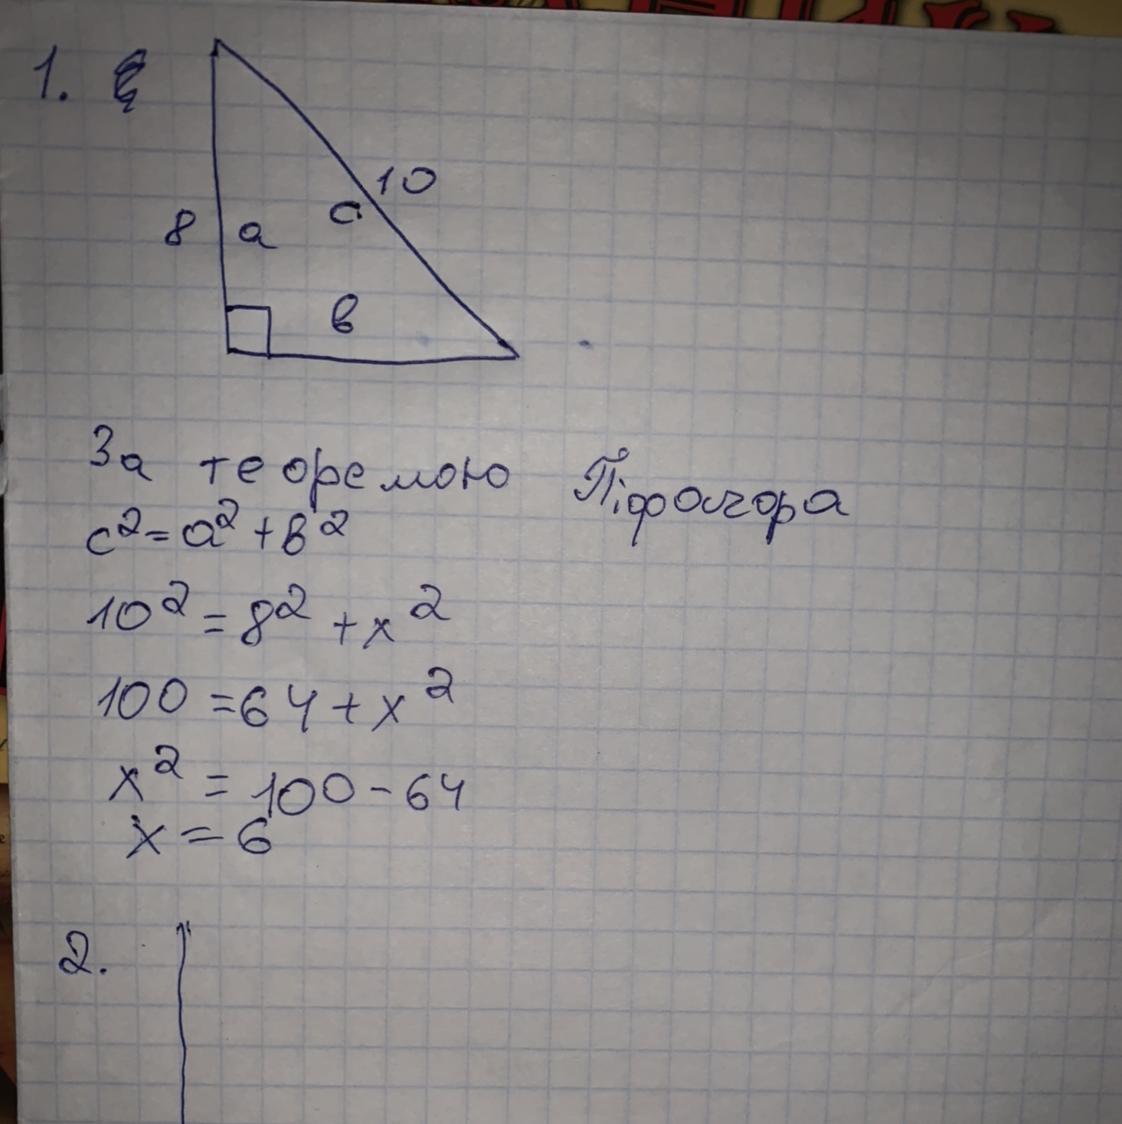 1.
10
8 a c
в
За теоремою Піфагора
c² = a² + в²
10² = 8² + x²
100 = 64 + x²
x² = 100 - 64
x = 6
2.